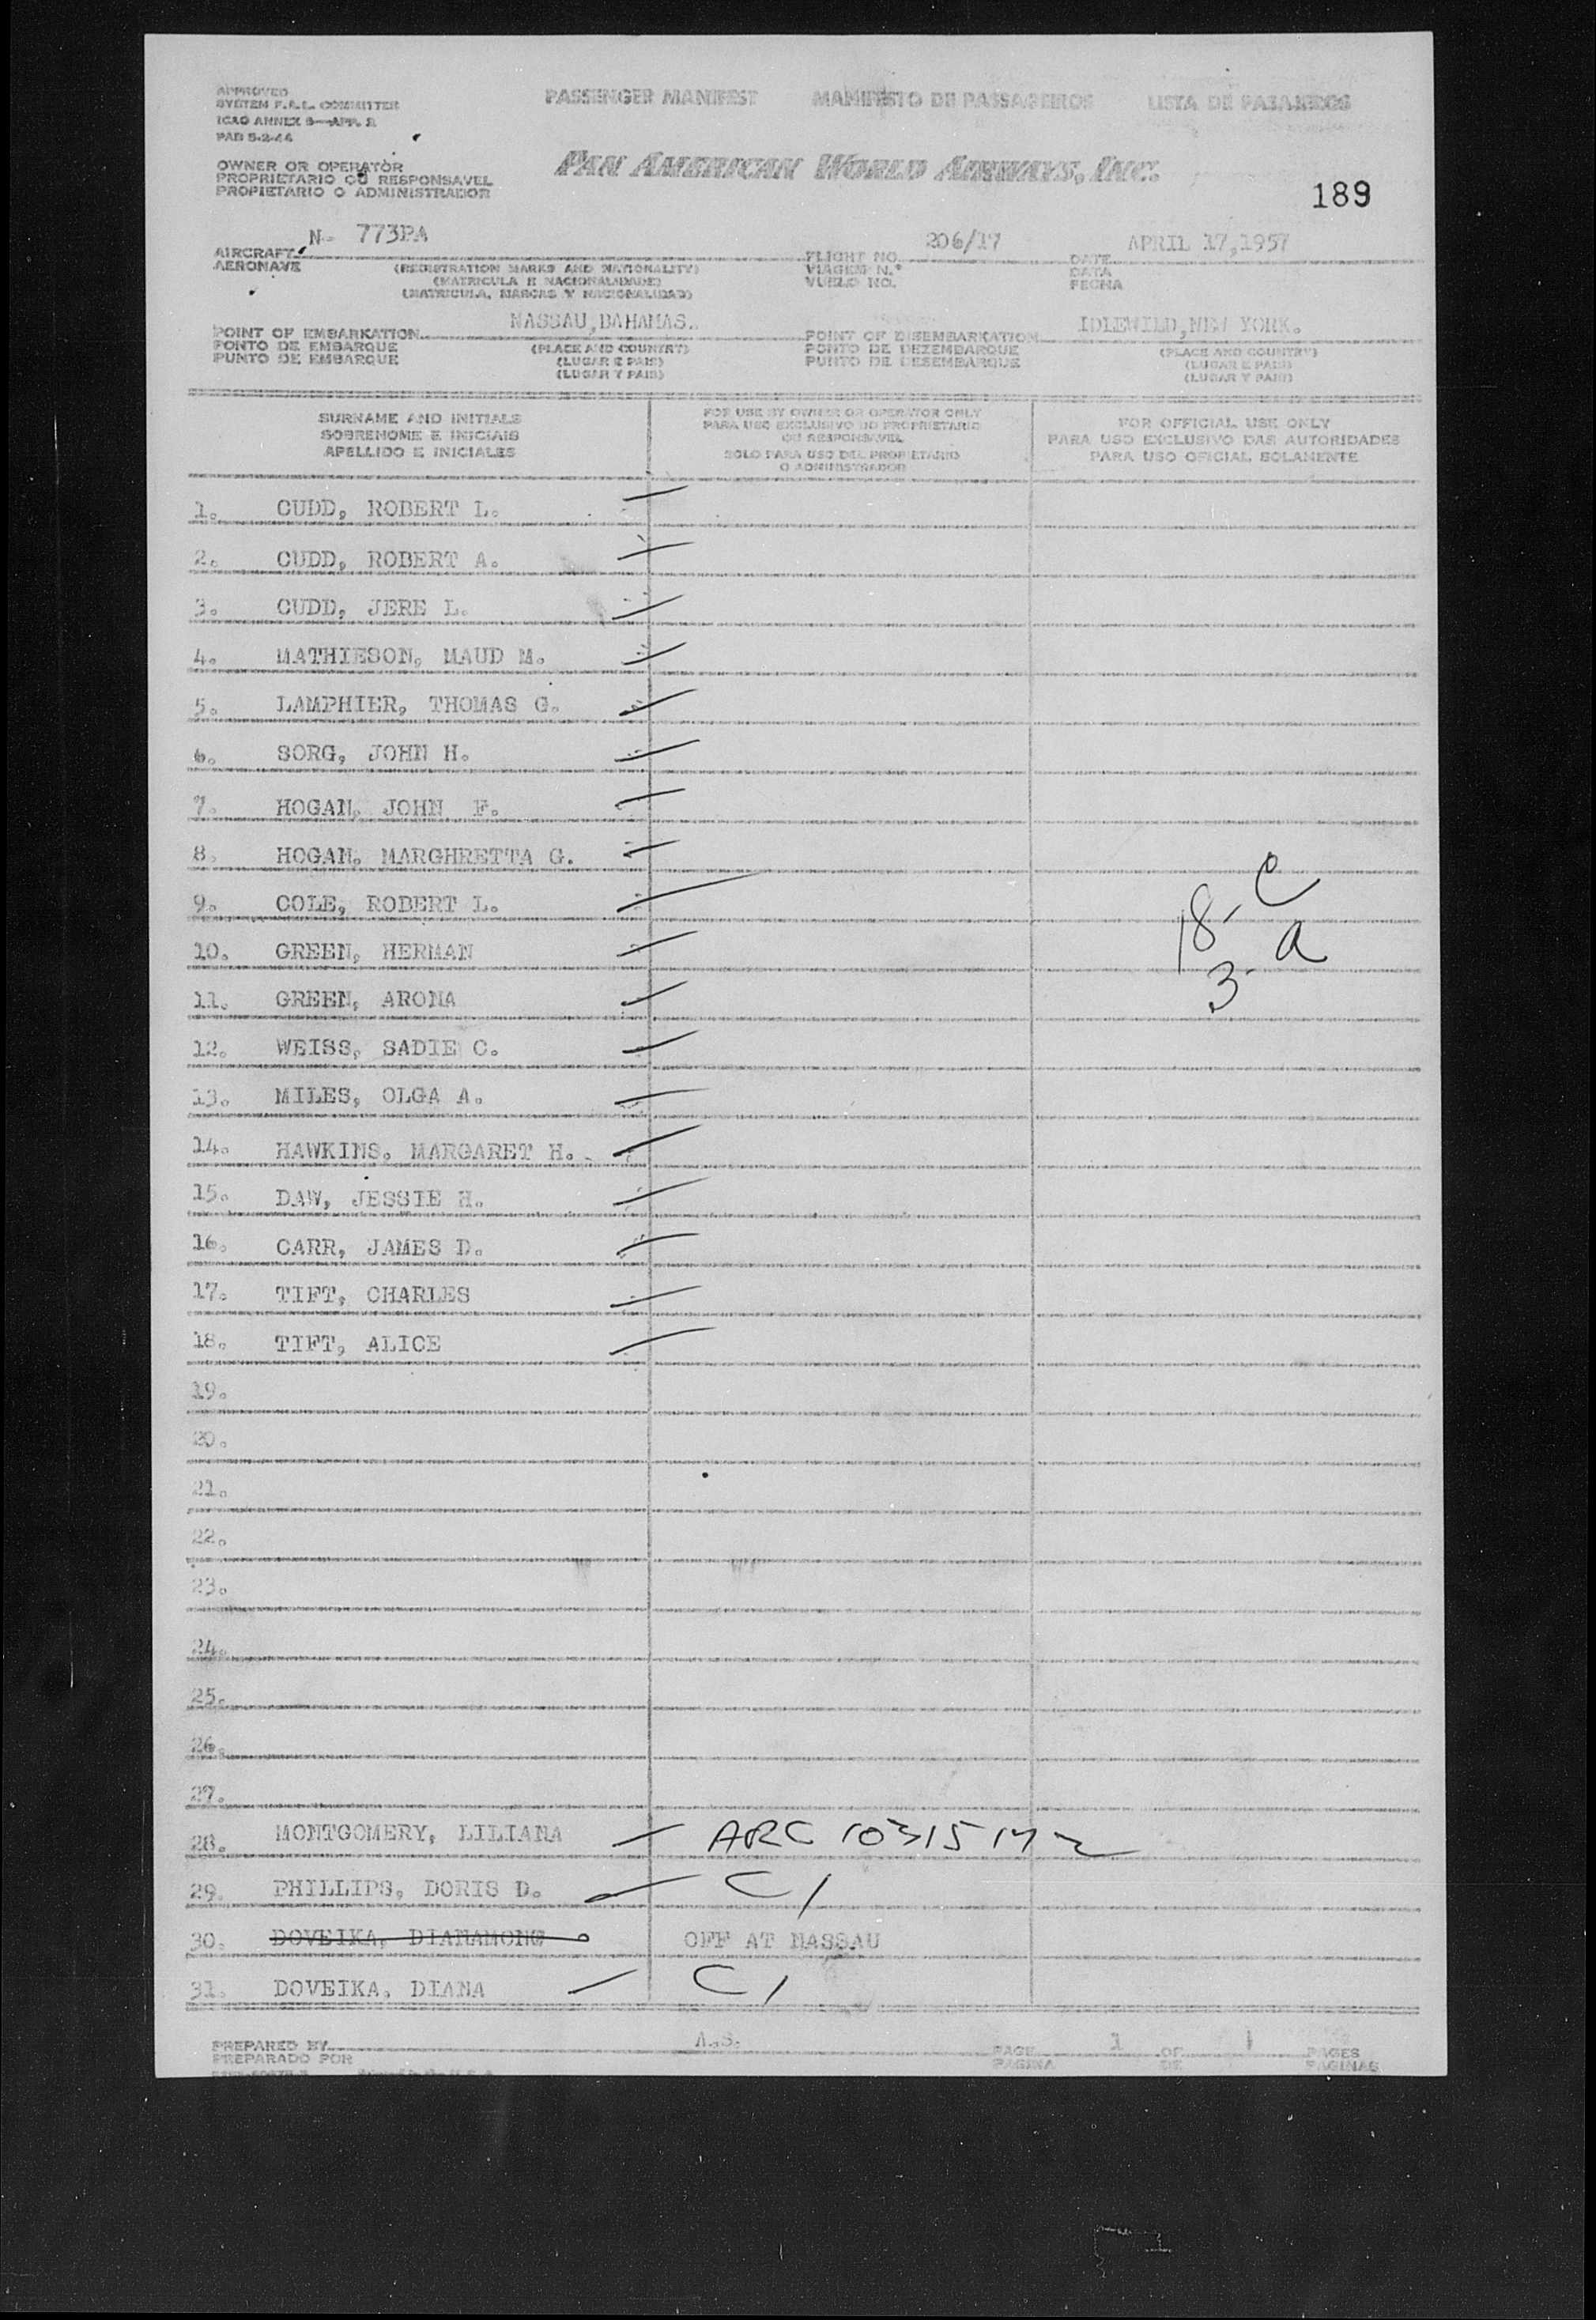 APPROVED
SYSTEM F.A.L. COMMITTEE
ICAO ANNEX 9—APP. 2
PAB 5-2-44
PASSENGER MANIFEST MANIFESTO DE PASSAGEIROS LISTA DE PASAJEROS
OWNER OR OPERATOR
PROPRIETARIO OU RESPONSAVEL
PROPIETARIO O ADMINISTRADOR
PAN AMERICAN WORLD AIRWAYS, INC.
189
AIRCRAFT N- 773PA
AERONAVE
(REGISTRATION MARKS AND NATIONALITY)
(MATRICULA E NACIONALIDADE)
(MATRICULA, MARCAS Y NACIONALIDAD)
FLIGHT NO. 206/17
VIAGEM N.º
VUELO NO.
DATE APRIL 17,1957
DATA
FECHA
POINT OF EMBARKATION NASSAU,BAHAMAS.
PONTO DE EMBARQUE
PUNTO DE EMBARQUE
(PLACE AND COUNTRY)
(LUGAR E PAIS)
(LUGAR Y PAIS)
POINT OF DISEMBARKATION IDLEWILD,NEW YORK.
PONTO DE DEZEMBARQUE
PUNTO DE DESEMBARQUE
(PLACE AND COUNTRY)
(LUGAR E PAIS)
(LUGAR Y PAIS)
SURNAME AND INITIALS
SOBRENOME E INICIAIS
APELLIDO E INICIALES
FOR USE BY OWNER OR OPERATOR ONLY
PARA USO EXCLUSIVO DO PROPRIETARIO
OU RESPONSAVEL
SOLO PARA USO DEL PROPIETARIO
O ADMINISTRADOR
FOR OFFICIAL USE ONLY
PARA USO EXCLUSIVO DAS AUTORIDADES
PARA USO OFICIAL SOLAMENTE
1. CUDD, ROBERT L.
2. CUDD, ROBERT A.
3. CUDD, JERE L.
4. MATHIESON, MAUD M.
5. LAMPHIER, THOMAS G.
6. SORG, JOHN H.
7. HOGAN, JOHN F.
8. HOGAN, MARGHRETTA G.
9. COLE, ROBERT L.
18- C
10. GREEN, HERMAN
3- a
11. GREEN, ARONA
12. WEISS, SADIE C.
13. MILES, OLGA A.
14. HAWKINS, MARGARET H.
15. DAW, JESSIE H.
16. CARR, JAMES D.
17. TIFT, CHARLES
18. TIFT, ALICE
19.
20.
21.
22.
23.
24.
25.
26.
27.
28. MONTGOMERY, LILIANA ARC 10315172
29. PHILLIPS, DORIS D. C/
30. DOVEIKA, DIANAMONG OFF AT NASSAU
31. DOVEIKA, DIANA C/
PREPARED BY A.S. PAGE 1 OF 1 PAGES
PREPARADO POR PAGINA DE PAGINAS